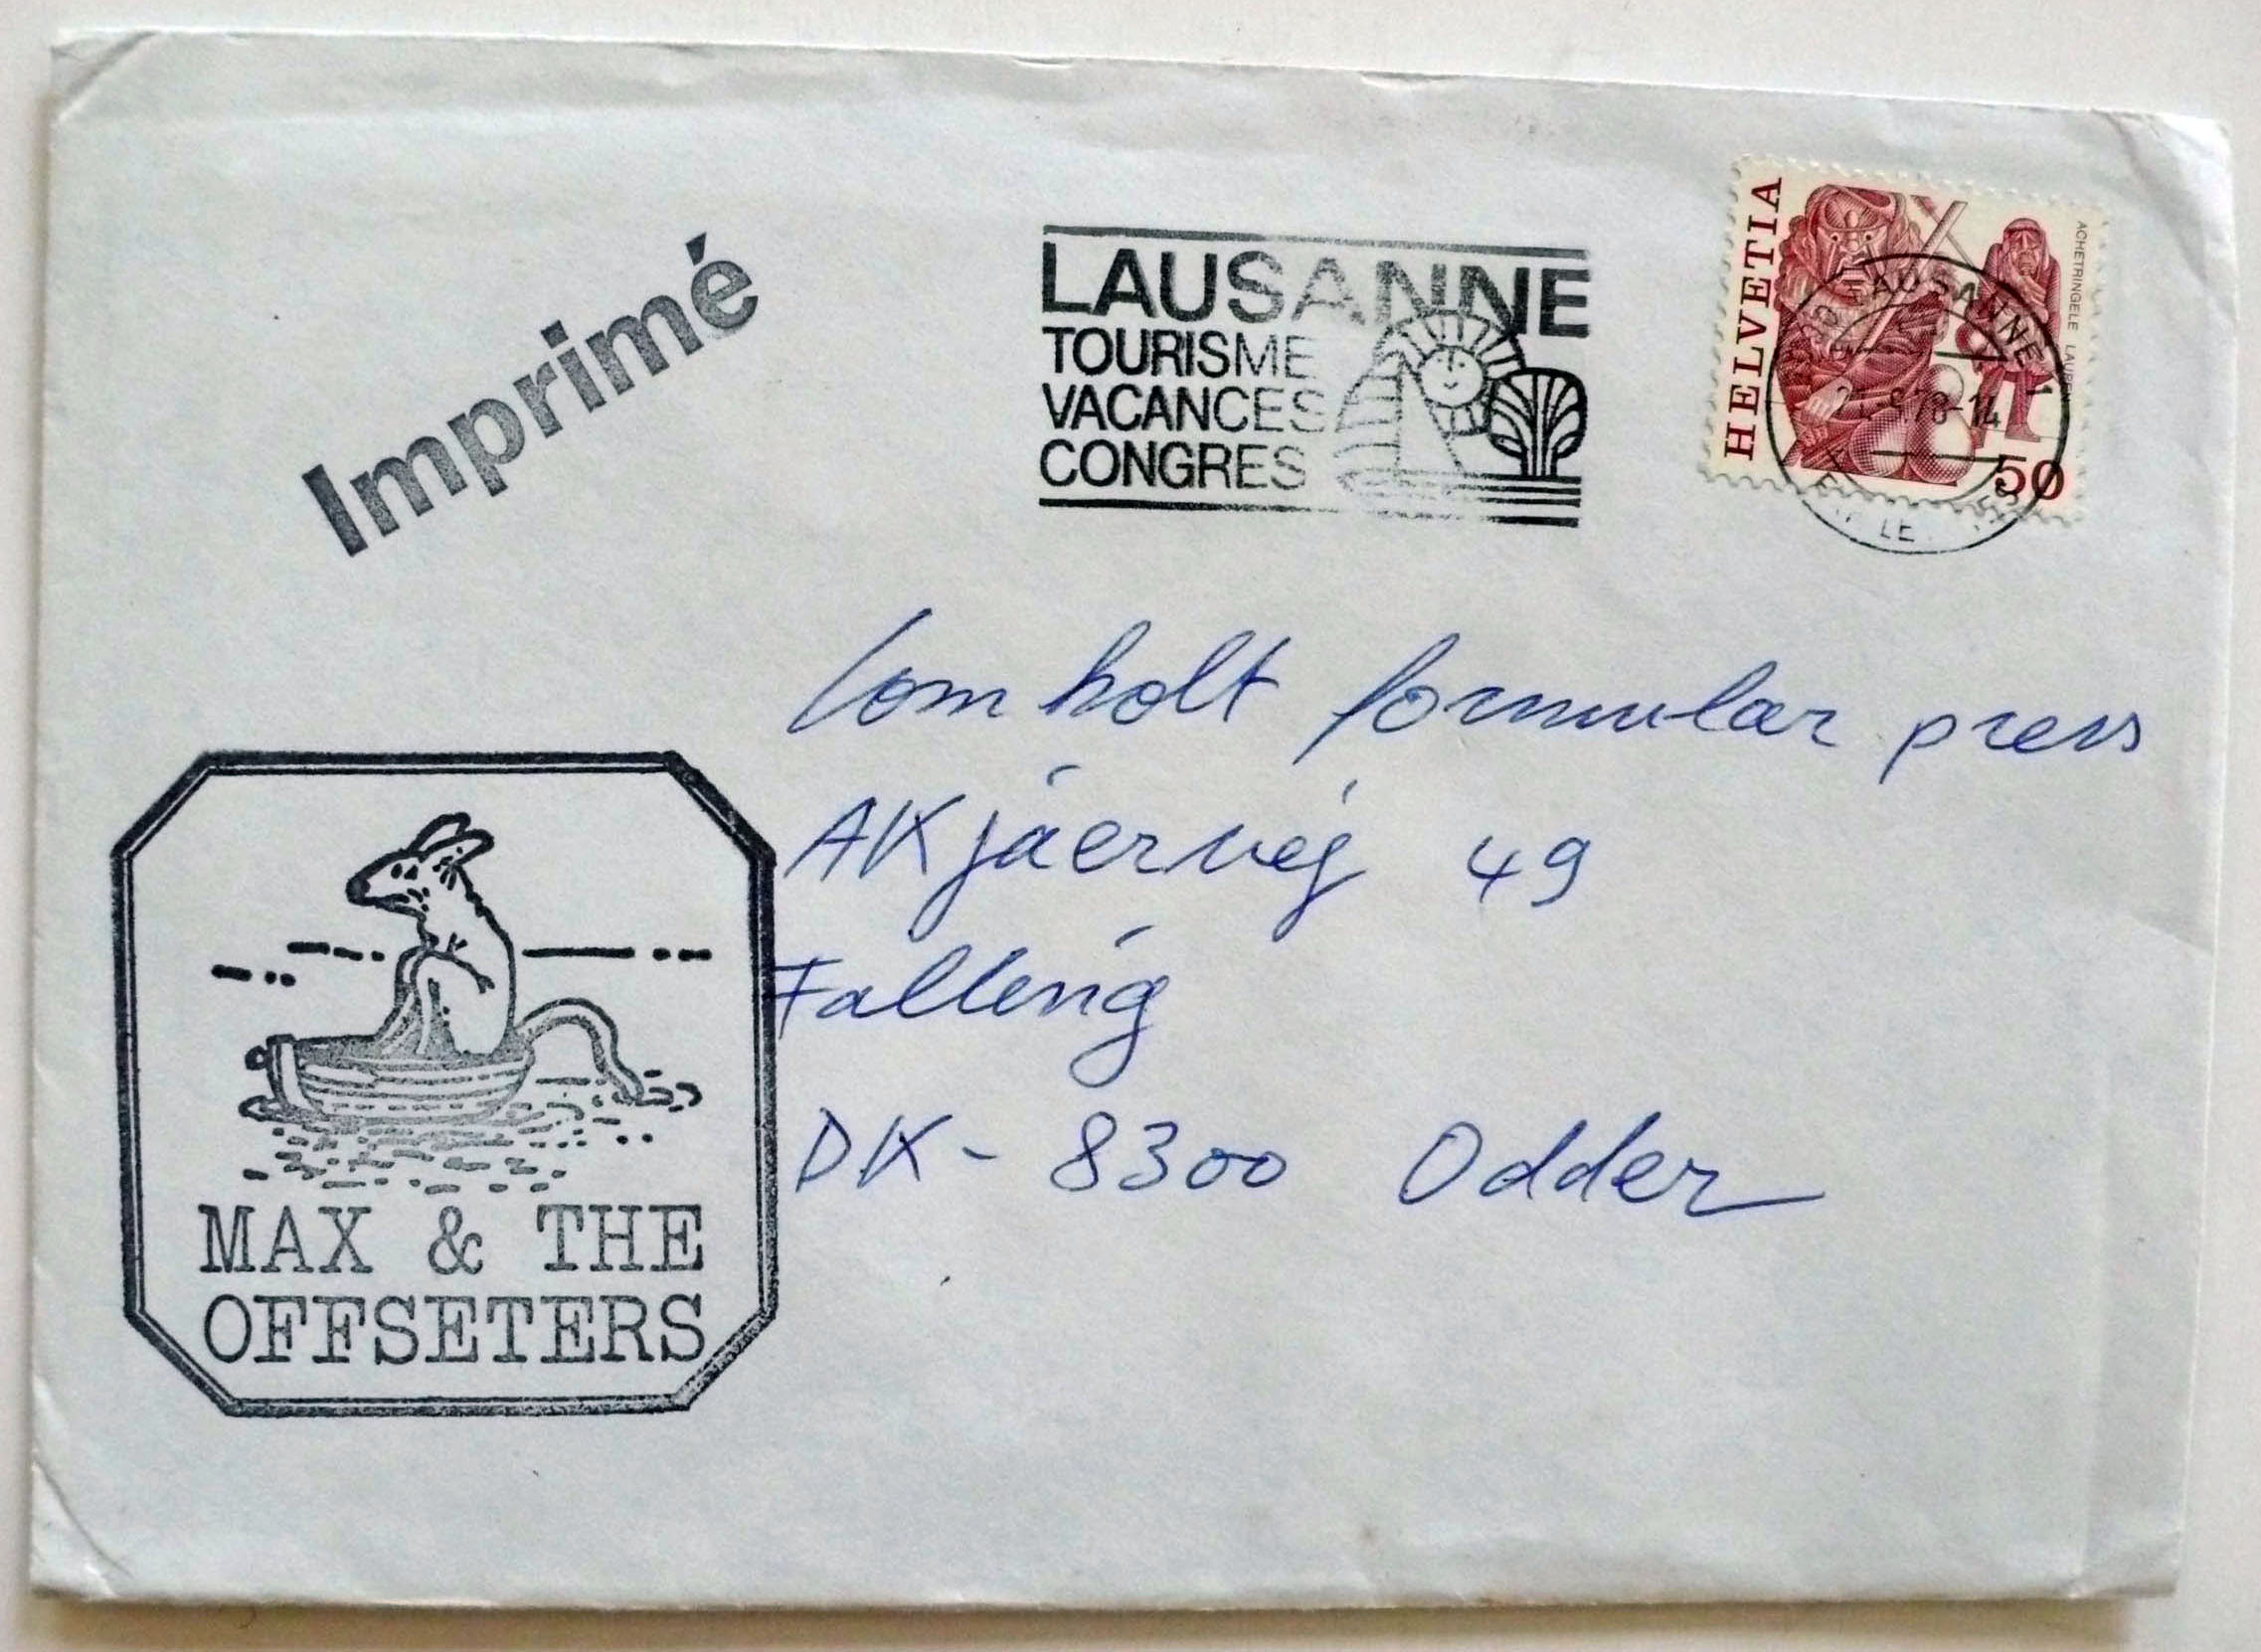 Imprimé
LAUSANNE
TOURISME
VACANCES
CONGRES
HELVETIA
ACHETRINGELE LAUPEN
50
LAUSANNE 1
Lomholt formular press
AKjáervej 49
Falling
DK - 8300 Odder
MAX & THE
OFFSETERS